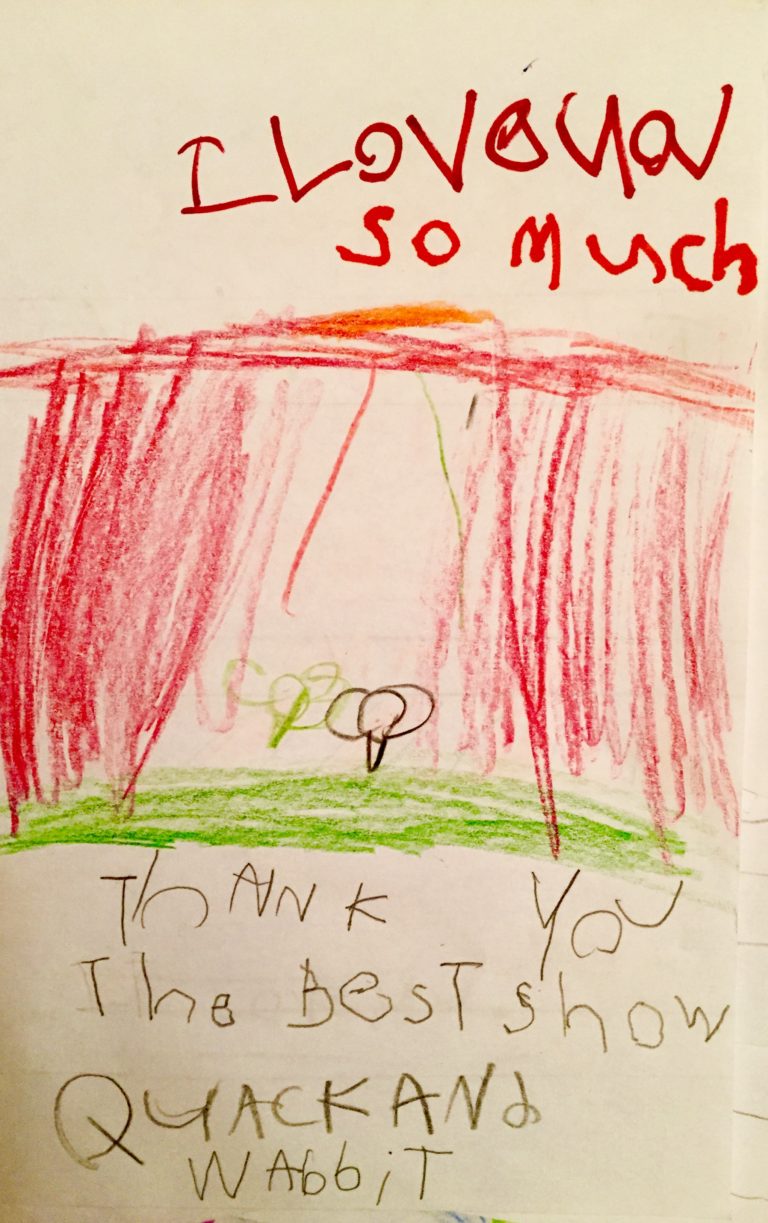 I LOVe you
so Much
Thank You
The BesT show
QuACK ANd
WAbbiT